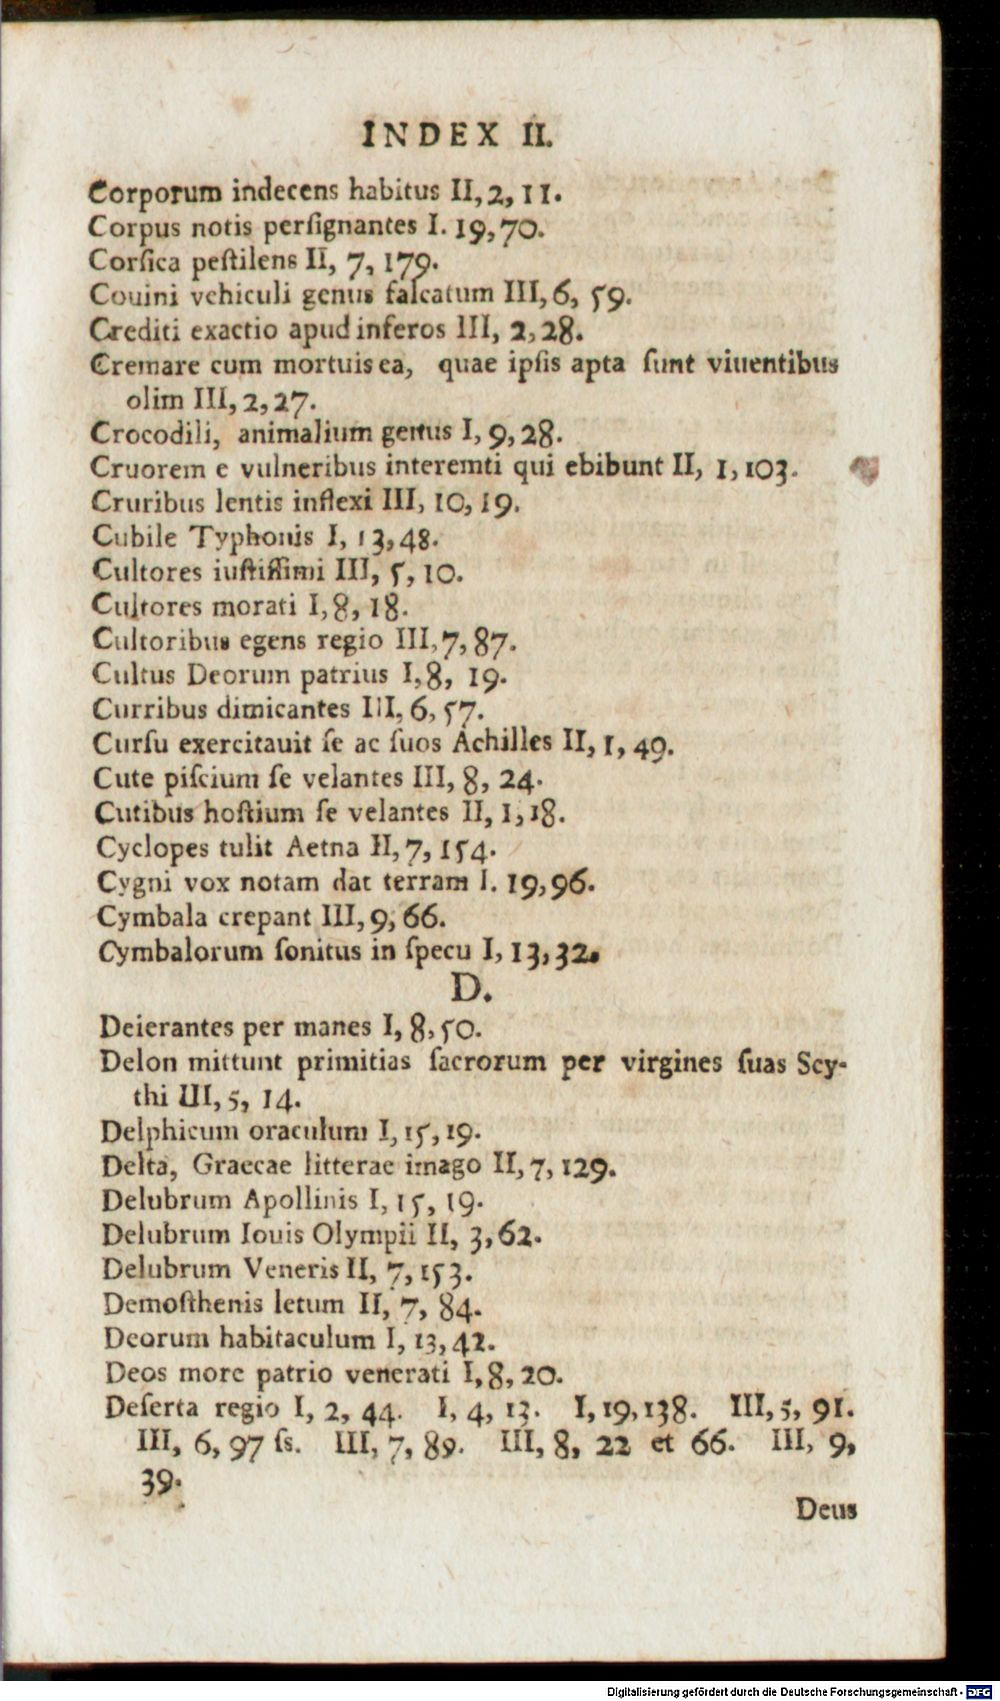 INDEX II.
Corporum indecens habitus II, 2, 11.
Corpus notis perſignantes I. 19, 70.
Corſica peſtilens II, 7, 179.
Couini vehiculi genus falcatum III, 6, 59.
Crediti exactio apud inferos III, 2, 28.
Cremare cum mortuis ea, quae ipſis apta ſunt viuentibus
olim III, 2, 27.
Crocodili, animalium genus I, 9, 28.
Cruorem e vulneribus interemti qui ebibunt II, 1, 103.
Cruribus lentis inflexi III, 10, 19.
Cubile Typhonis I, 13, 48.
Cultores iuſtiſſimi III, 5, 10.
Cultores morati I, 8, 18.
Cultoribus egens regio III, 7, 87.
Cultus Deorum patrius I, 8, 19.
Curribus dimicantes III, 6, 57.
Curſu exercitauit ſe ac ſuos Achilles II, 1, 49.
Cute piſcium ſe velantes III, 8, 24.
Cutibus hoſtium ſe velantes II, 1, 18.
Cyclopes tulit Aetna II, 7, 154.
Cygni vox notam dat terram I. 19, 96.
Cymbala crepant III, 9, 66.
Cymbalorum ſonitus in ſpecu I, 13, 32.
D.
Deierantes per manes I, 8, 50.
Delon mittunt primitias ſacrorum per virgines ſuas Scy-
thi III, 5, 14.
Delphicum oraculum I, 15, 19.
Delta, Graecae litterae imago II, 7, 129.
Delubrum Apollinis I, 15, 19.
Delubrum Iouis Olympii II, 3, 62.
Delubrum Veneris II, 7, 153.
Demoſthenis letum II, 7, 84.
Deorum habitaculum I, 13, 42.
Deos more patrio venerati I, 8, 20.
Deſerta regio I, 2, 44. I, 4, 13. I, 19, 138. III, 5, 91.
III, 6, 97 ſs. III, 7, 89. III, 8, 22 et 66. III, 9,
39.
Deus
Digitalisierung gefördert durch die Deutsche Forschungsgemeinschaft - DFG